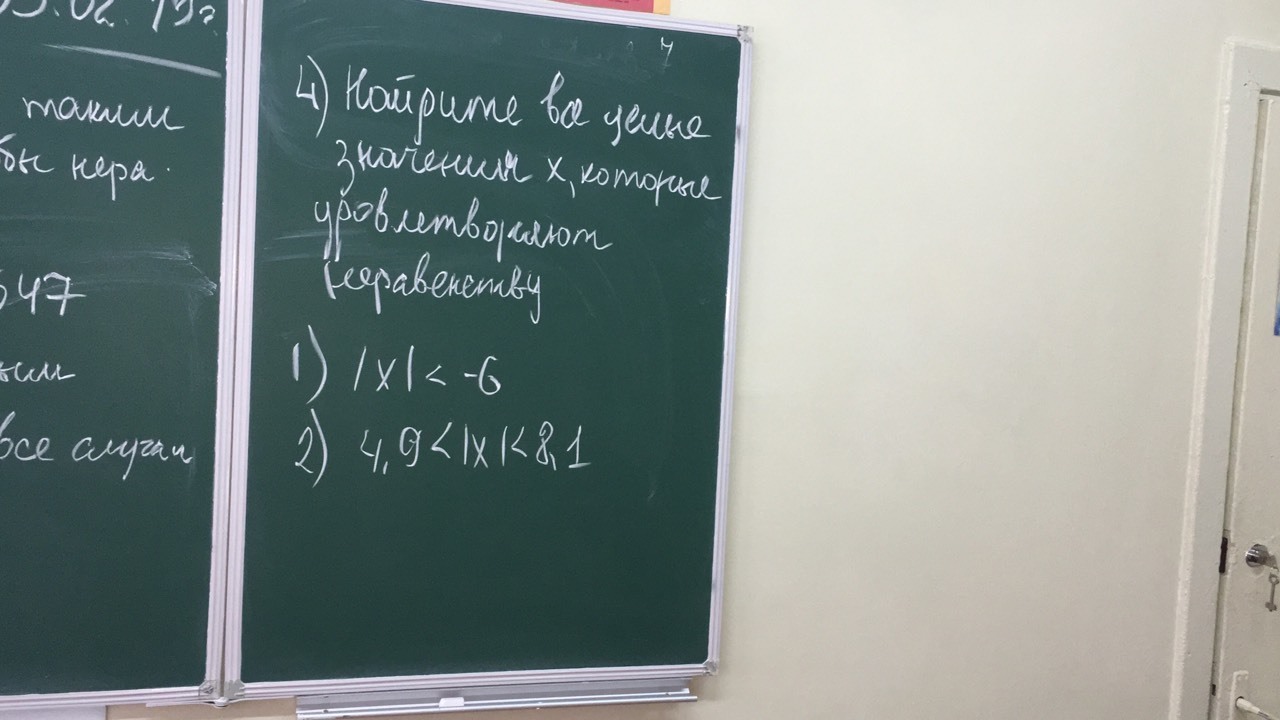 03.02.19г
таким
нера.
47
все случаи
4) Найдите все целые
значения x, которые
удовлетворяют
неравенству
1) |x| < -6
2) 4,9 < |x| < 8,1